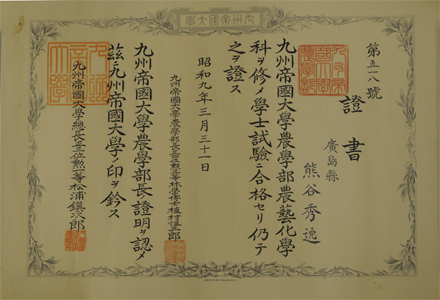 九州帝國大學
第五一八號
證書
廣島縣
熊谷秀逸
九州帝國大學農學部農藝化學
科ヲ修メ學士試驗ニ合格セリ仍テ
之ヲ證ス
昭和九年三月三十一日
九州帝國大學農學部長
九州帝國大學農學部長ノ證明ヲ認メ
茲ニ九州帝國大學ノ印ヲ鈐ス
九州帝國大學總長 松浦鎮次郎